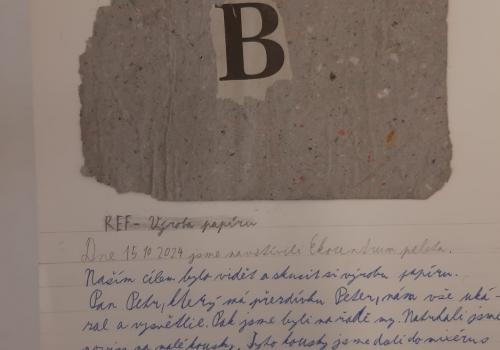 B
REF- Výroba papíru
Dne 15.10 2024 jsme navštívili Ekocentrum paleta.
Naším cílem bylo vidět a zkusit si výrobu papíru.
Pan Petr, který má přezdívku Peter, nám vše uká-
zal a vysvětlil. Pak jsme byli na řadě my. Natrhali jsme
na malé kousky. Tyto kousky jsme dali do mixéru s